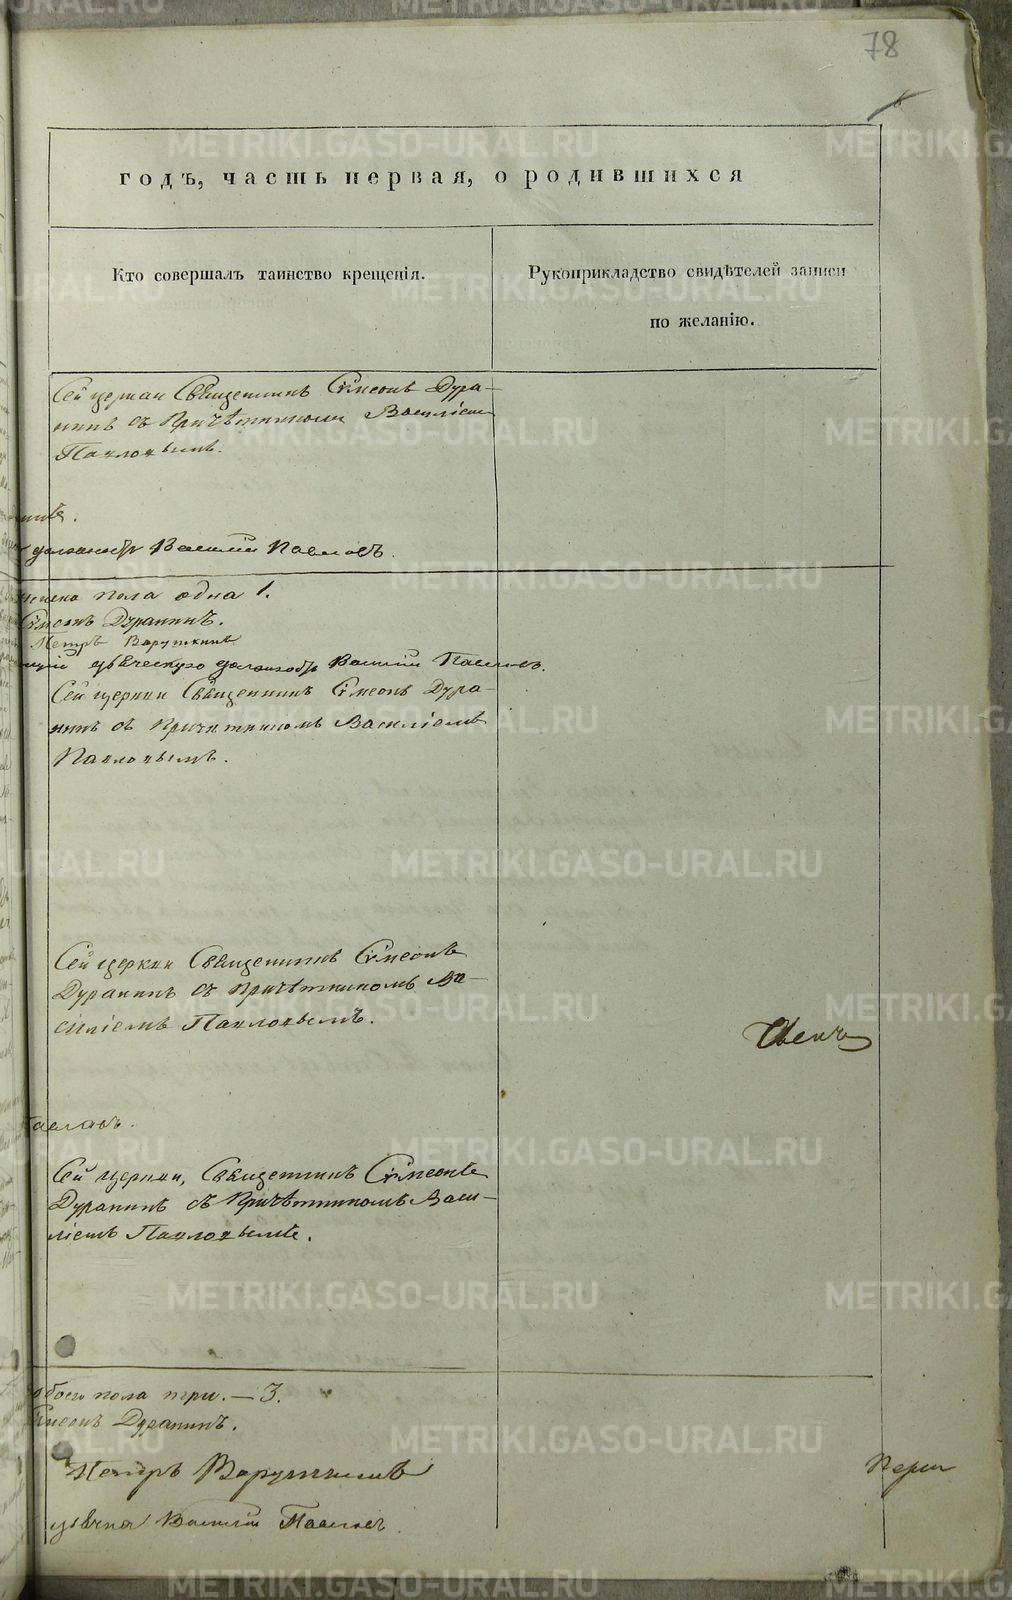 78
годъ, часть первая, о родившихся
Кто совершалъ таинство крещенія.
Рукоприкладство свидѣтелей записи
по желанію.
Сей церкви Священникъ Сѵмеонъ Дура-
нинъ съ Причѣтникомъ Василіемъ
Павловымъ.
Василій Павловъ.
пола одна 1.
Сѵмеонъ Дуранинъ.
Петръ Варушкинъ
дьяческую должность Василій Павловъ.
Сей церкви Священникъ Сѵмеонъ Дура-
нинъ съ Причетникомъ Василіемъ
Павловымъ.
Сей церкви Священникъ Сѵмеонъ
Дуранинъ съ Причѣтникомъ Ва-
силіемъ Павловымъ.
Павловъ.
Сей церкви, Священникъ Сѵмеонъ
Дуранинъ съ Причѣтникомъ Васи-
ліемъ Павловымъ.
обоего пола три. — 3.
Сѵмеонъ Дуранинъ.
Петръ Варушкинъ
Василій Павловъ.
METRIKI.GASO-URAL.RU